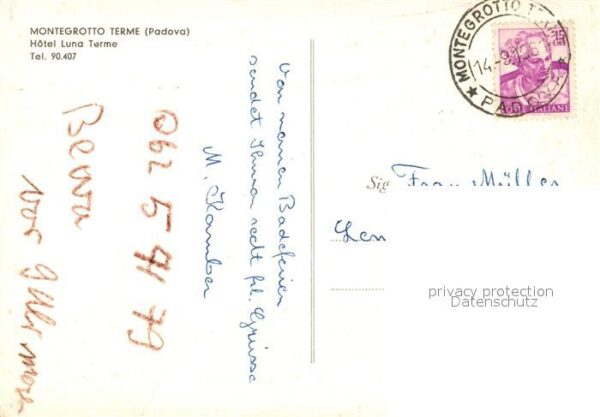 MONTEGROTTO TERME (Padova)
Hôtel Luna Terme
Tel. 90.407
MONTEGROTTO TERME
14-9.196
PADOVA
POSTE ITALIANE
Von meinen Badeferien
sendet Ihnen recht frl. Grüsse
M. Kamber
062 5 41 79
Sig
Frau Müller
Len
privacy protection
Datenschutz